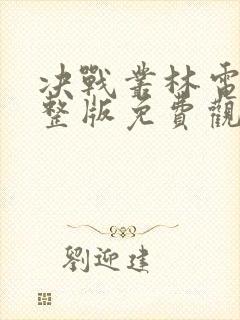 決戰叢林電
整版免費觀
劉迎建